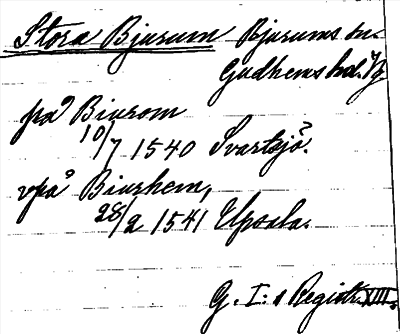 Stora Bjurum Bjurums sn.
Gudhems hd. Vg
på Biurom
10/7 1540 Svartsjö.
vpå Biurhem,
28/2 1541 Upsala.
G. I:s Registr. XIII.